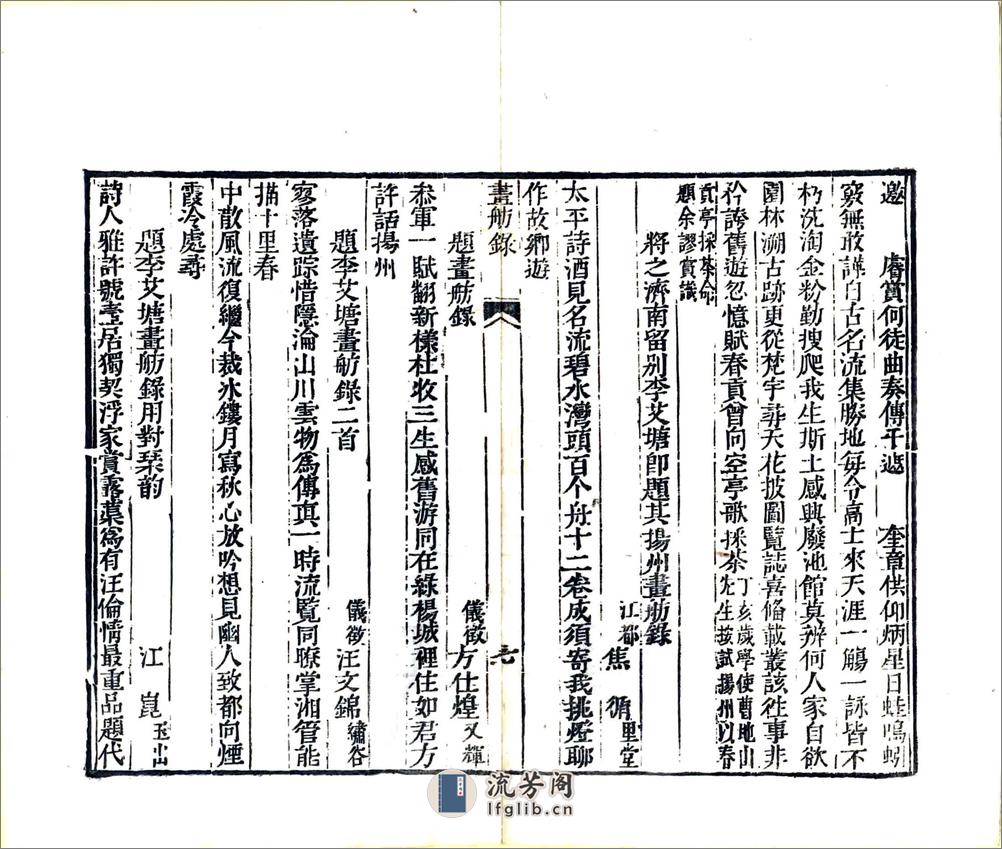 邀　睿賞何徒曲奏傳千遞　奎章供仰炳星日蛙鳴蚓
竅無敢譁自古名流集勝地每令高士來天涯一觴一詠皆不
朽沈淘金粉勤搜爬我生斯土感興廢池館莫辨何人家自欲
園林溯古跡更從梵宇尋天花披圖覽誌喜俻載叢該徃事非
矜誇舊遊忽憶賦春貢曾向空亭歌採茶丁亥歲學使曹地山先生按試揚州以春
貢亭採茶命題余謬賞識
將之濟南留别李艾塘即題其揚州畫舫錄
江都　焦　循里堂
太平詩酒見名流碧水灣頭百个舟十二卷成須寄我挑燈聊
作故鄉遊
畫舫錄
題畫舫錄
儀徵方仕煌又輝
叅軍一賦翻新様杜牧三生感舊游同在綠楊城裡住如君方
許話揚州
題李艾塘畫舫錄二首
儀徵汪文錦繡谷
寥落遺踪惜隱淪山川雲物爲傳真一時流覽同瞭掌湘管能
描十里春
中散風流復繼今裁氷鏤月寫秋心放吟想見幽人致都向煙
霞冷處尋
題李艾塘畫舫錄用對琴韵
江　崑玉出
詩人雅許號耋居獨契浮家賞露葉爲有汪倫情最重品題代
流芳阁
lfglib.cn